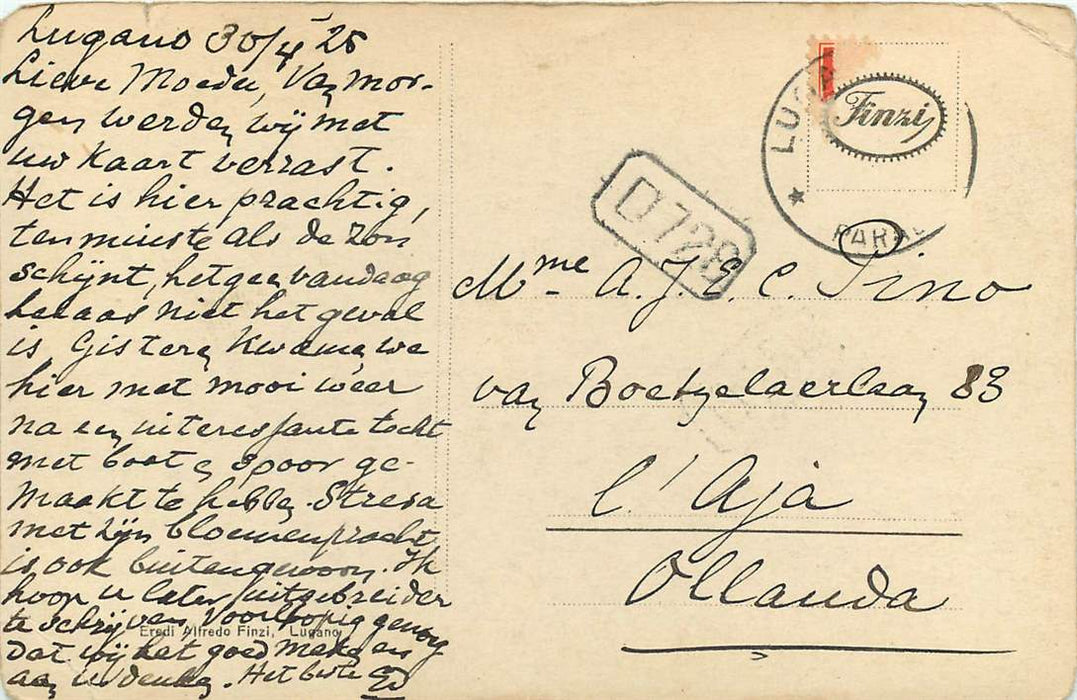 Lugano 30/4 '25
Lieve Moeder, Van mor-
gen werden wij met
uw kaart verrast.
Het is hier prachtig,
tenminste, als de zon
schijnt, hetgeen vandaag
helaas niet het geval
is. Gisteren kwamen we
hier met mooi weer
na een interessante tocht
met boot en spoor ge-
maakt te hebben. Stresa
met zijn bloemenpracht
is ook buitengewoon. Ik
hoop u later uitgebreider
te schrijven. Voorloopig genoeg
dat wij het goed maken en
aan u denken. Het beste
Eredi Alfredo Finzi, Lugano
LUG
Finzi
PARA
D 728
Mme A. J. E. C. Tino
van Boetzelaerlaan 83
l'Aja
Ollanda